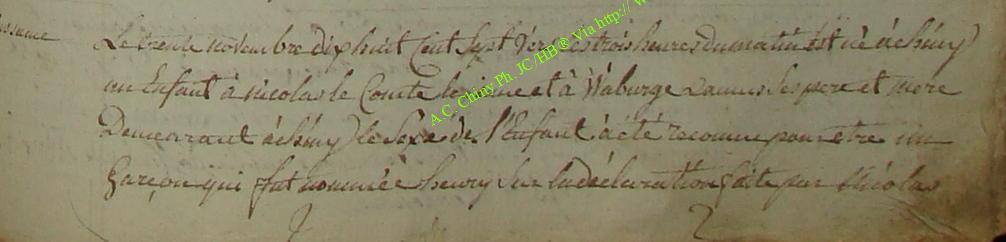 Le trente novembre dix huit Cent Sept Vers les trois heures du matin Est né à chiny
un Enfant à nicolas le Comte le jeune et à Waburge Lamus Ses pere et mere
Demeurant à chiny le Sexe de l'Enfant à été reconnu pour etre un
Garçon qui fut nommée henry Sur la déclaration faite par Nicolas
A.C. Chiny Ph. JC/HB® Via http://